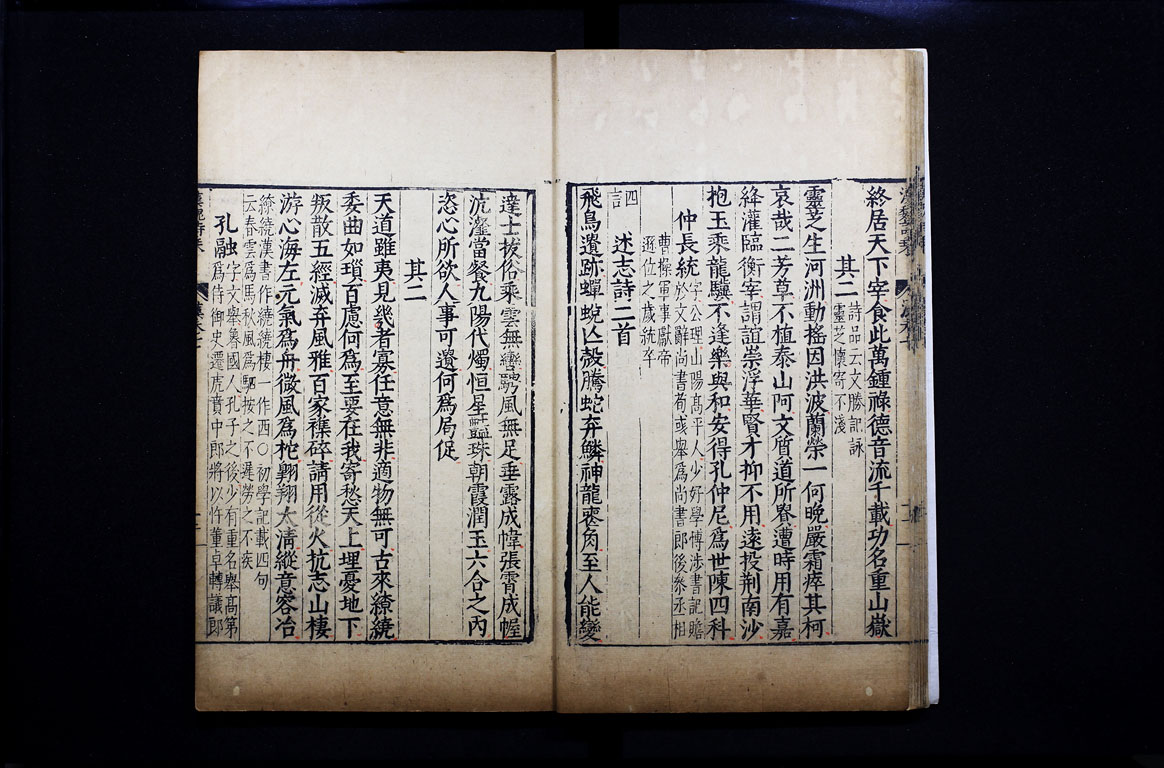 終居天下宰食此萬鍾祿德音流千載功名重山嶽
其二
詩品云文勝託詠
靈芝懷寄不淺
靈芝生河洲動搖因洪波蘭榮一何晚嚴霜瘁其柯
哀哉二芳草不植泰山阿文質道所貴遭時用有嘉
絳灌臨衡宰謂誼崇浮華賢才抑不用遠投荆南沙
抱玉乘龍驥不逢樂與和安得孔仲尼爲世陳四科
仲長統
字公理山陽高平人少好學博涉書記贍
於文辭尚書荀彧舉爲尚書郎後參丞相
曹操軍事獻帝
遜位之歲統卒
述志詩二首
四言
飛鳥遺跡蟬蛻亾殼騰蛇弃鱗神龍喪角至人能變
達士拔俗乘雲無轡騁風無足垂露成幃張霄成幄
沆瀣當餐九陽代燭恒星豔珠朝霞潤玉六合之內
恣心所欲人事可遺何爲局促
其二
天道雖夷見幾者寡任意無非適物無可古來繚繞
委曲如瑣百慮何爲至要在我寄愁天上埋憂地下
叛散五經滅弃風雅百家襍碎請用從火抗志山棲
游心海左元氣爲舟微風爲柁翺翔太清縱意容冶
繚繞漢書作繞繞棲一作西〇初學記載四句
云春雲爲馬秋風爲駟按之不遲勞之不疾
孔融
字文舉魯國人孔子之後少有重名舉高第
爲侍御史遷虎賁中郎將以忤董卓轉議郎